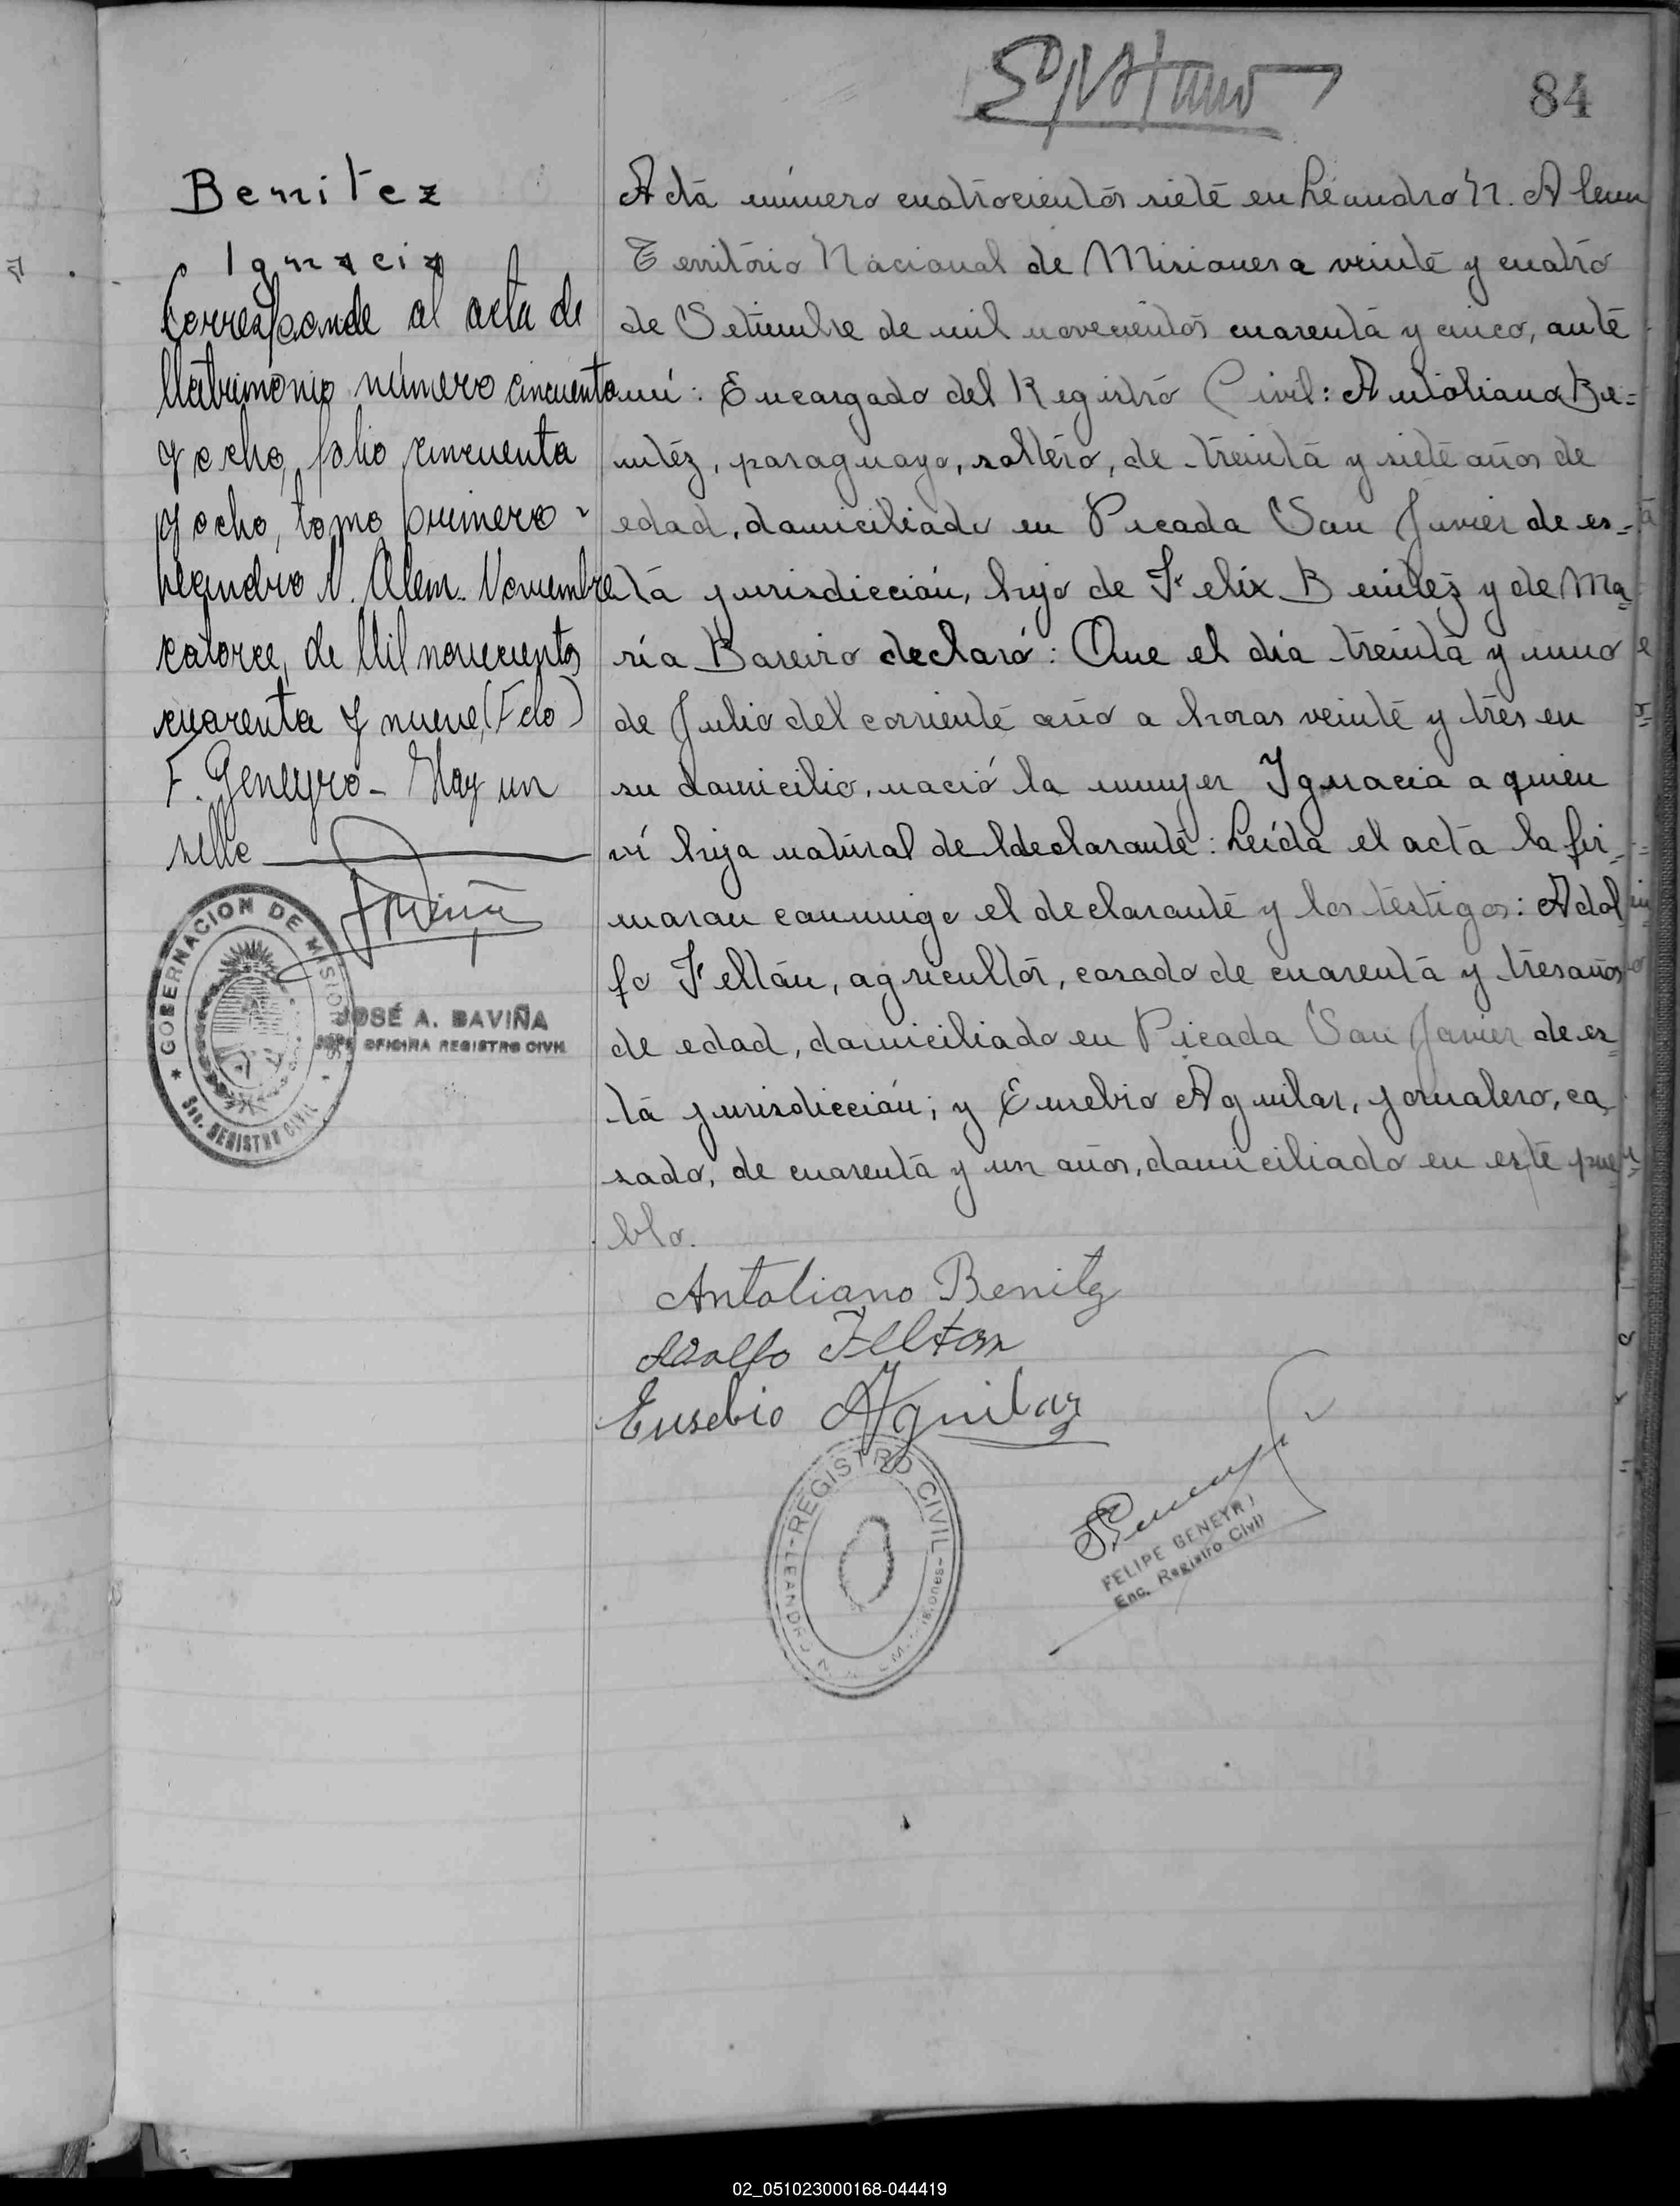 84
Benitez
Ignacia
Corresponde al acta de
Matrimonio número cincuenta
y ocho, folio cincuenta
y ocho, tomo primero -
Leandro N. Alem. Noviembre
catorce, de Mil novecientos
cuarenta y nueve, (Fdo)
F. Geneyro - Hay un
sello
GOBERNACION DE MISIONES
Sec. REGISTRO CIVIL
JOSÉ A. BAVIÑA
JEFE OFICINA REGISTRO CIVIL
Acta número cuatrocientos siete en Leandro N. Alem
Territorio Nacional de Misiones a veinte y cuatro
de Setiembre de mil novecientos cuarenta y cinco, ante
mi: Encargado del Registro Civil: Antoliano Be=
nitéz, paraguayo, soltero, de treinta y siete años de
edad, domiciliado en Picada San Javier de es-
ta jurisdicción, hijo de Felix Benitez y de Ma
ria Bareiro declaró: Que el día treinta y uno
de Julio del corriente año a horas veinte y tres en
su domicilio, nació la mujer Ignacia a quien
ví hija natural del declarante: Leída el acta la fir-
maran conmigo el declarante y los testigos: Adol
fo Feltán, agricultor, casado de cuarenta y tres años
de edad, domiciliado en Picada San Javier de es
ta jurisdicción; y Eusebio Aguilar, jornalero, ca
sado, de cuarenta y un años, domiciliado en este pue
blo.
Antoliano Benitez
Adolfo Feltan
Eusebio Aguilar
REGISTRO CIVIL
LEANDRO N.
Misiones
FELIPE GENEYRO
Enc. Registro Civil
02_051023000168-044419